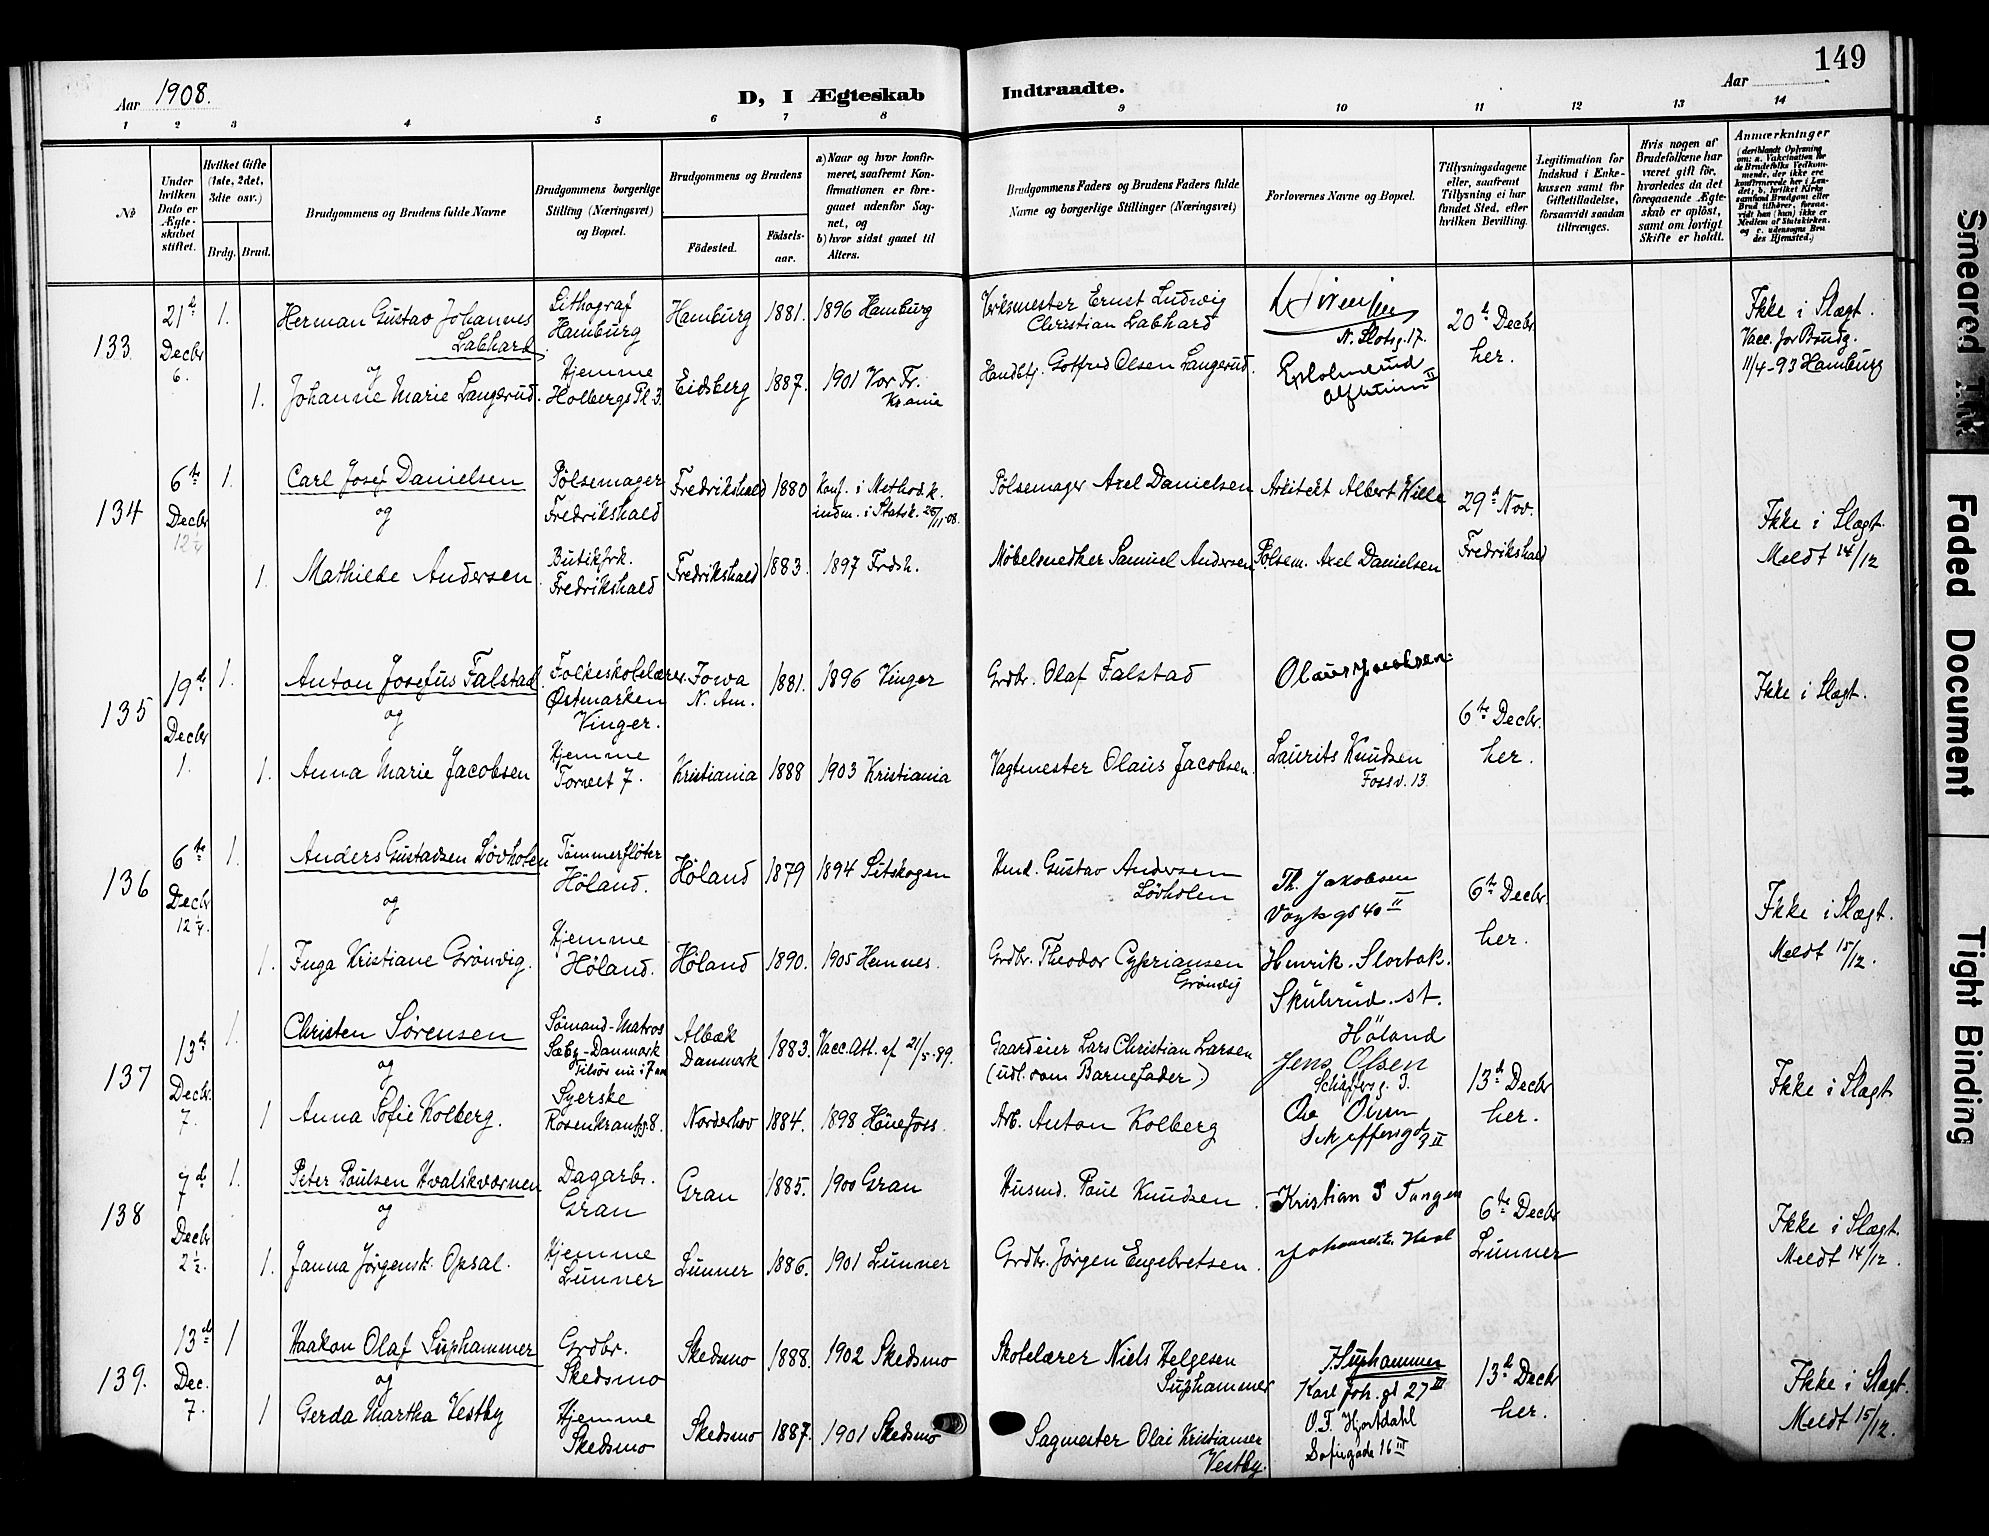 149
Aar 1908.
D, I Ægteskab Indtraadte.
Aar
1 2 3 4 5 6 7 8 9 10 11 12 13 14
No
Under hvilken Dato er Ægteskabet stiftet.
Hvilket Gifte (1ste, 2det, 3die osv.)
Brdg. Brud.
Brudgommens og Brudens fulde Navne
Brudgommens borgerlige Stilling (Næringsvei) og Bopæl.
Brudgommens og Brudens
Fødested. Fødselsaar.
a) Naar og hvor konfirmeret, saafremt Konfirmationen er foregaaet udenfor Sognet, og
b) hvor sidst gaaet til Alters.
Brudgommens Faders og Brudens Faders fulde Navne og borgerlige Stillinger (Næringsvei)
Forlovernes Navne og Bopæl.
Tillysningsdagene eller, saafremt Tillysning ei har fundet Sted, efter hvilken Bevilling.
Legitimation for Indskud i Enkekassen samt for Giftetilladelse, forsaavidt saadan tiltrænges.
Hvis nogen af Brudefolkene har været gift før, hvorledes da det foregaaende Ægteskab er opløst, samt om lovligt Skifte er holdt.
Anmærkninger
(deriblandt Oplysning om: a. Vakcination for de Brudefolks Vedkommende, der ikke ere konfirmerede her i Landet; b. hvilket Kirkesamfund Brudgom eller Brud tilhører, forsaavidt han (hun) ikke er Medlem af Statskirken, og c. udensogns Brudes Hjemsted.)
133
21de Decbr 6.
1.
Herman Gustav Johannes Labhard
Lithograf Hamburg
Hamburg
1881.
1896 Hamburg
Verksmester Ernst Ludwig Christian Labhard
N. Slotsg. 17.
20de Decbr her.
Ikke i Slægt.
Vacc. for Brudg. 11/4-93 Hamburg
og
1.
Johanne Marie Langerud.
Hjemme Holbergs Pl. 3.
Eidsberg
1887.
1901 Vor Fr. Krania
Handelsf. Gotfred Olsen Langerud.
134
6te Decbr 12 1/4
1.
Carl Josef Danielsen
Pølsemager Fredrikshald
Fredrikshald
1880
Konf. i Method. k. indm. i Statsk. 25/11-08.
Pølsemager Axel Danielsen
Arkitekt Albert Wille
29de Nov. Fredrikshald
Ikke i Slægt.
Meldt 14/12
og
1.
Mathilde Andersen
Butikfrk. Fredrikshald
Fredrikshald
1883.
1897 Frdsh.
Møbelsnedker Samuel Andersen
Pølsem. Axel Danielsen
135
19de Decbr 1.
1.
Anton Josefus Falstad.
Folkeskolelærer. Østmarken Vinger.
Iowa N. Am.
1881.
1896 Vinger
Grdbr. Olaf Falstad
Olaus Jacobsen.
6te Decbr. her.
Ikke i Slægt.
og
1.
Anna Marie Jacobsen
Hjemme Torvet 7.
Kristiania
1888
1903 Kristiania
Vagtmester Olaus Jacobsen.
Laurits Knudsen
Fossv. 13
136
6te Decbr 12 1/4.
1.
Anders Gustavsen Løvholen
Tømmerfløter Høland.
Høland
1879
1894 Sitskogen
Husd. Gustav Andersen Løvholen
Th. Jakobsen
Vogtsgd 40 II
6te Decbr. her.
Ikke i Slægt.
Meldt 15/12.
og
1.
Inga Kristiane Grønvig.
Hjemme Høland.
Høland
1890.
1905 Hemnes.
Grdbr. Theodor Cyprians​en Grønvig
Henrik Slorbak.
Skulerud st.
Høland
137
13de Decbr. 7.
1.
Christen Sørensen
Sømand-Matros Sæby-Danmark
Albæk Danmark
1883.
Vacc. Att. af 21/5-89.
Gaardeier Lars Christian Larsen
(udl. som Barnefader.)
Jens Olsen
Schäffersg. 3.
13de Decbr her.
Ikke i Slægt
og
1
Anna Sofie Kolberg.
Syerske Rosenkrantzg. 8.
Norderhov
1884.
1898 Hønefoss.
Arb. Anton Kolberg
138
7de Decbr. 2 1/2.
1.
Peter Poulsen Hvalskværnen
Dagarb. Gran
Gran
1885.
1900 Gran
Husmd. Poul Knudsen.
Kristian P Tangen
6te Decbr Lunner
Ikke i Slægt.
Meldt 14/12.
og
1.
Janna Jørgensdt. Opsal.
Hjemme Lunner
Lunner
1886.
1901 Lunner
Grdbr. Jørgen Engebretsen.
139.
13de Dec. 7.
1
Haakon Olaf Suphammer
Grdbr. Skedsmo
Skedsmo
1888.
1902 Skedsmo
Skolelærer Niels Helgesen Suphammer
Suphammer
Karl Joh. gd 27 III
13de Decbr her.
Ikke i Slægt.
Meldt 15/12.
og
1
Gerda Martha Vestby
Hjemme Skedsmo
Skedsmo
1887.
1901 Skedsmo
Sagmester Olai Kristiansen Vestby.
O. T. Hjortdahl
Sofiegade 16 III
Smeared Ink
Faded Document
Tight Binding